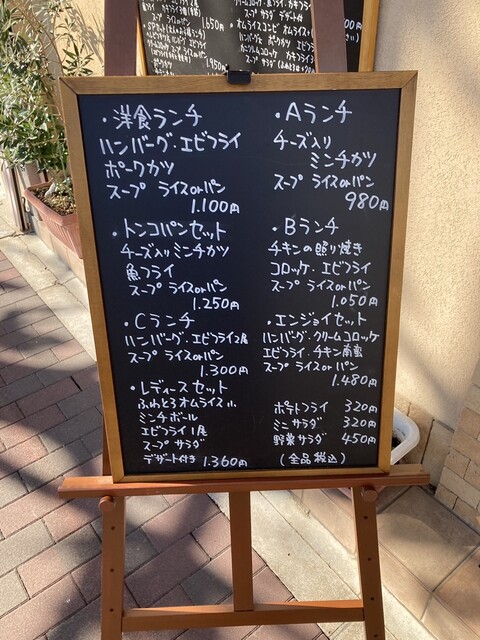 1.650円
・オムライスコンビ
スープ サラダ
1.950円
・洋食ランチ
ハンバーグ・エビフライ
ポークカツ
スープ ライスorパン
1.100円
・トンコパンセット
チーズ入りミンチカツ
魚フライ
スープ ライスorパン
1.250円
・Cランチ
ハンバーグ・エビフライ2尾
スープ ライスorパン
1.300円
・レディースセット
ふわとろオムライス小
ミンチボール
エビフライ1尾
スープ サラダ
デザート付き 1.360円
・Aランチ
チーズ入り
ミンチカツ
スープ ライスorパン
980円
・Bランチ
チキンの照り焼き
コロッケ・エビフライ
スープ ライスorパン
1.050円
・エンジョイセット
ハンバーグ・クリームコロッケ
エビフライ・チキン南蛮
スープ ライスorパン
1.480円
ポテトフライ 320円
ミニサラダ 320円
野菜サラダ 450円
(全品税込)